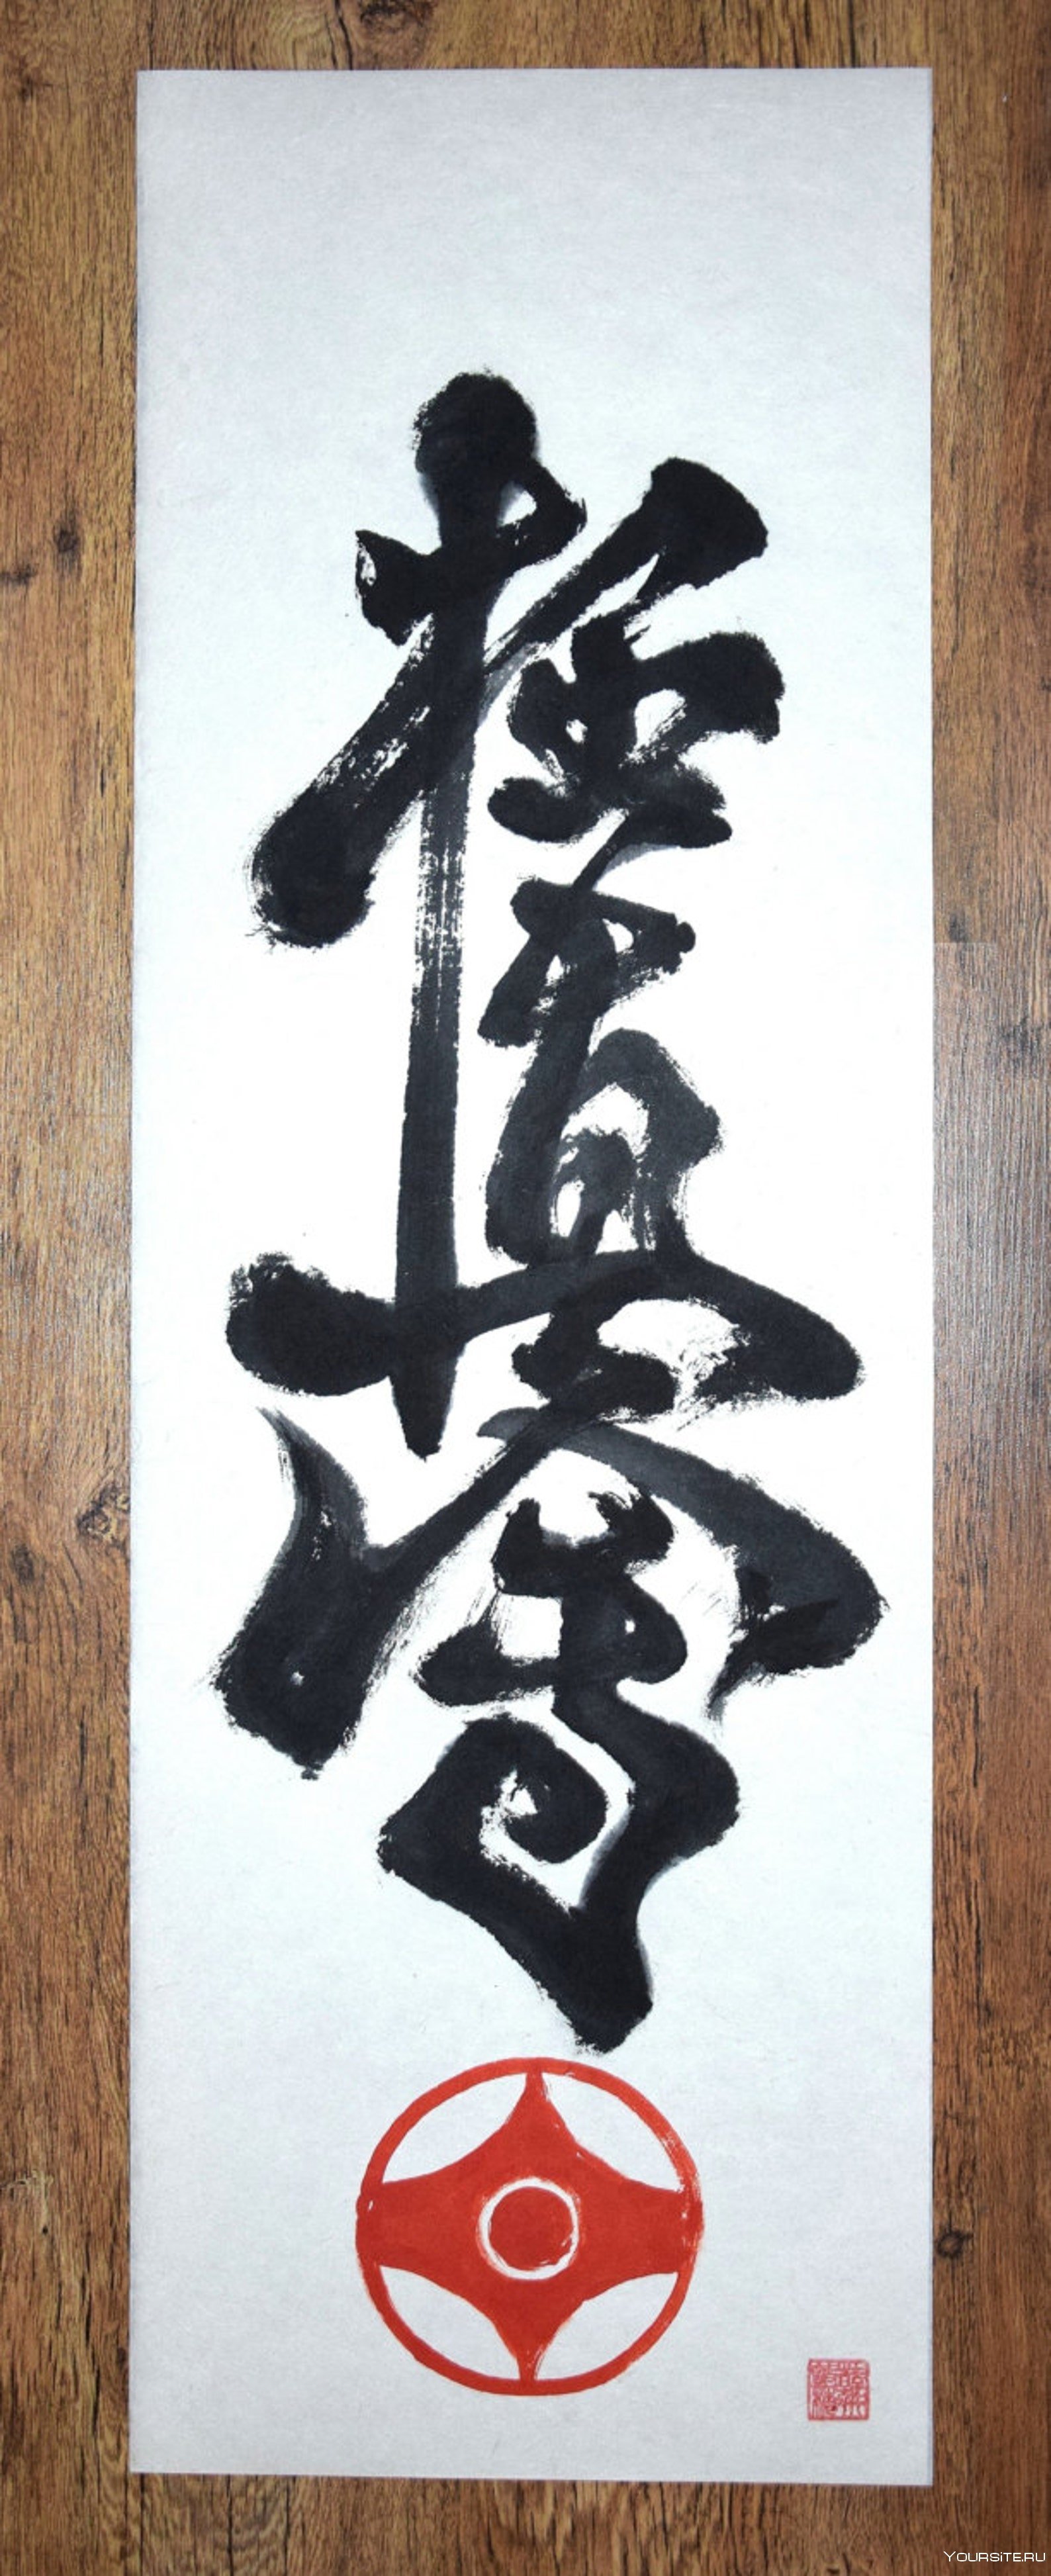 極真会
YOURSITE.RU